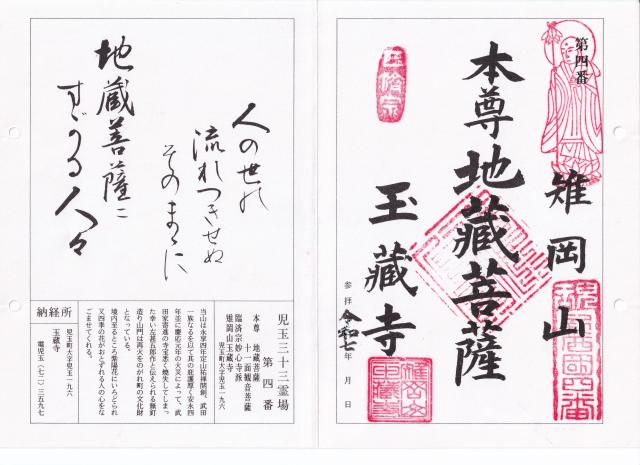 第四番
雉岡山
本尊地蔵菩薩
玉蔵寺
臨済宗
参拝 令和七年 月 日
人の世の
流れつきせぬ
そのまゝに
地蔵菩薩に
すがる人々
児玉三十三霊場
第四番
本尊 地蔵菩薩
十一面観音菩薩
臨済宗妙心寺派
雉岡山玉蔵寺
児玉町大字児玉一九六
当山は永享四年定山祐禅開創、武田
一族なるを以て其の庇護厚く安永四
年並に慶応元年の火災によって、武
田家寄進の寺宝悉く焼失してしまっ
た幸い左甚五郎作と伝えられる無釘
造り山門は再火をのがれ町の文化財
となっている。
境内至るところ紫陽花にいろどられ
又四季の花がおとずれる人の心をな
ごませてくれる。
納経所
児玉町大字児玉一九六
玉蔵寺
電児玉(七二)三五九七